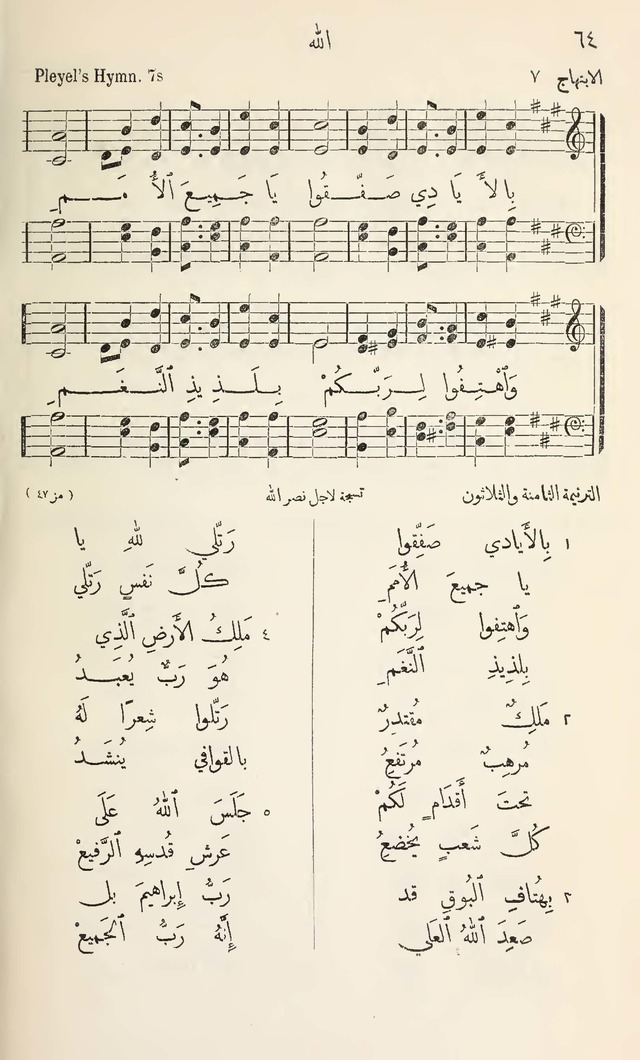 ٦٤
الله
الابتهاج ٧
Pleyel's Hymn. 7s
بِالأَيَادِي صَفِّقُوا يَا جَمِيعَ ٱلأُمَمِ
وَٱهْتِفُوا لِرَبِّكُمْ بِلَذِيذِ ٱلنَّغَمِ
الترنيمة الثامنة والثلاثون
تسبحة لاجل نصر الله
( مز ٤٧ )
١ بِالأَيادي صَفِّقوا
يا جميعَ الأُمَمِ
وَٱهتِفوا لِرَبِّكُمْ
بِلذِيذِ ٱلنَّغَمِ
٢ مَلِكٌ مُقتدِرٌ
مُرهِبٌ مُرتَفِعُ
تحتَ أَقدَامٍ لَكُمْ
كُلَّ شَعبٍ يُخضِعُ
٢ بِهُتافِ ٱلبُوقِ قد
صَعِدَ ٱللهُ ٱلعَلي
رَتِّلي للهِ يا
كلَّ نَفسٍ رَتِّلي
٤ مَلِكُ الأَرضِ ٱلَّذِي
هُوَ رَبٌّ يُعبَدُ
رَتِّلوا شِعرًا لَهُ
بالقوافي يُنشَدُ
٥ جَلَسَ ٱللهُ عَلَى
عَرشِ قُدسِهِ ٱلرَّفيعْ
رَبُّ إِبراهيمَ بل
إِنَّهُ رَبُّ ٱلجَميعْ